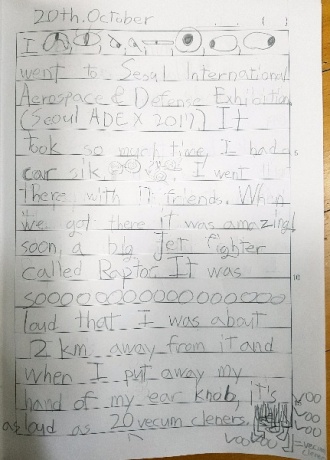 20th. October
I
went to Seoul International
Aerospace & Defense Exhibition
(Seoul ADEX 2017) It
took so much time, I had a
car sik. I went
There with 17 friends. When
we got there it was amazing!
soon, a big Jet Fighter
called Raptor. It was
sooooooooooooooooo
loud that I was about
2 km away from it and
when I put away my
hand of my ear knob, it's
as loud as 20 vecum cleners.
voo
voo
voo
voo voo
=vecum